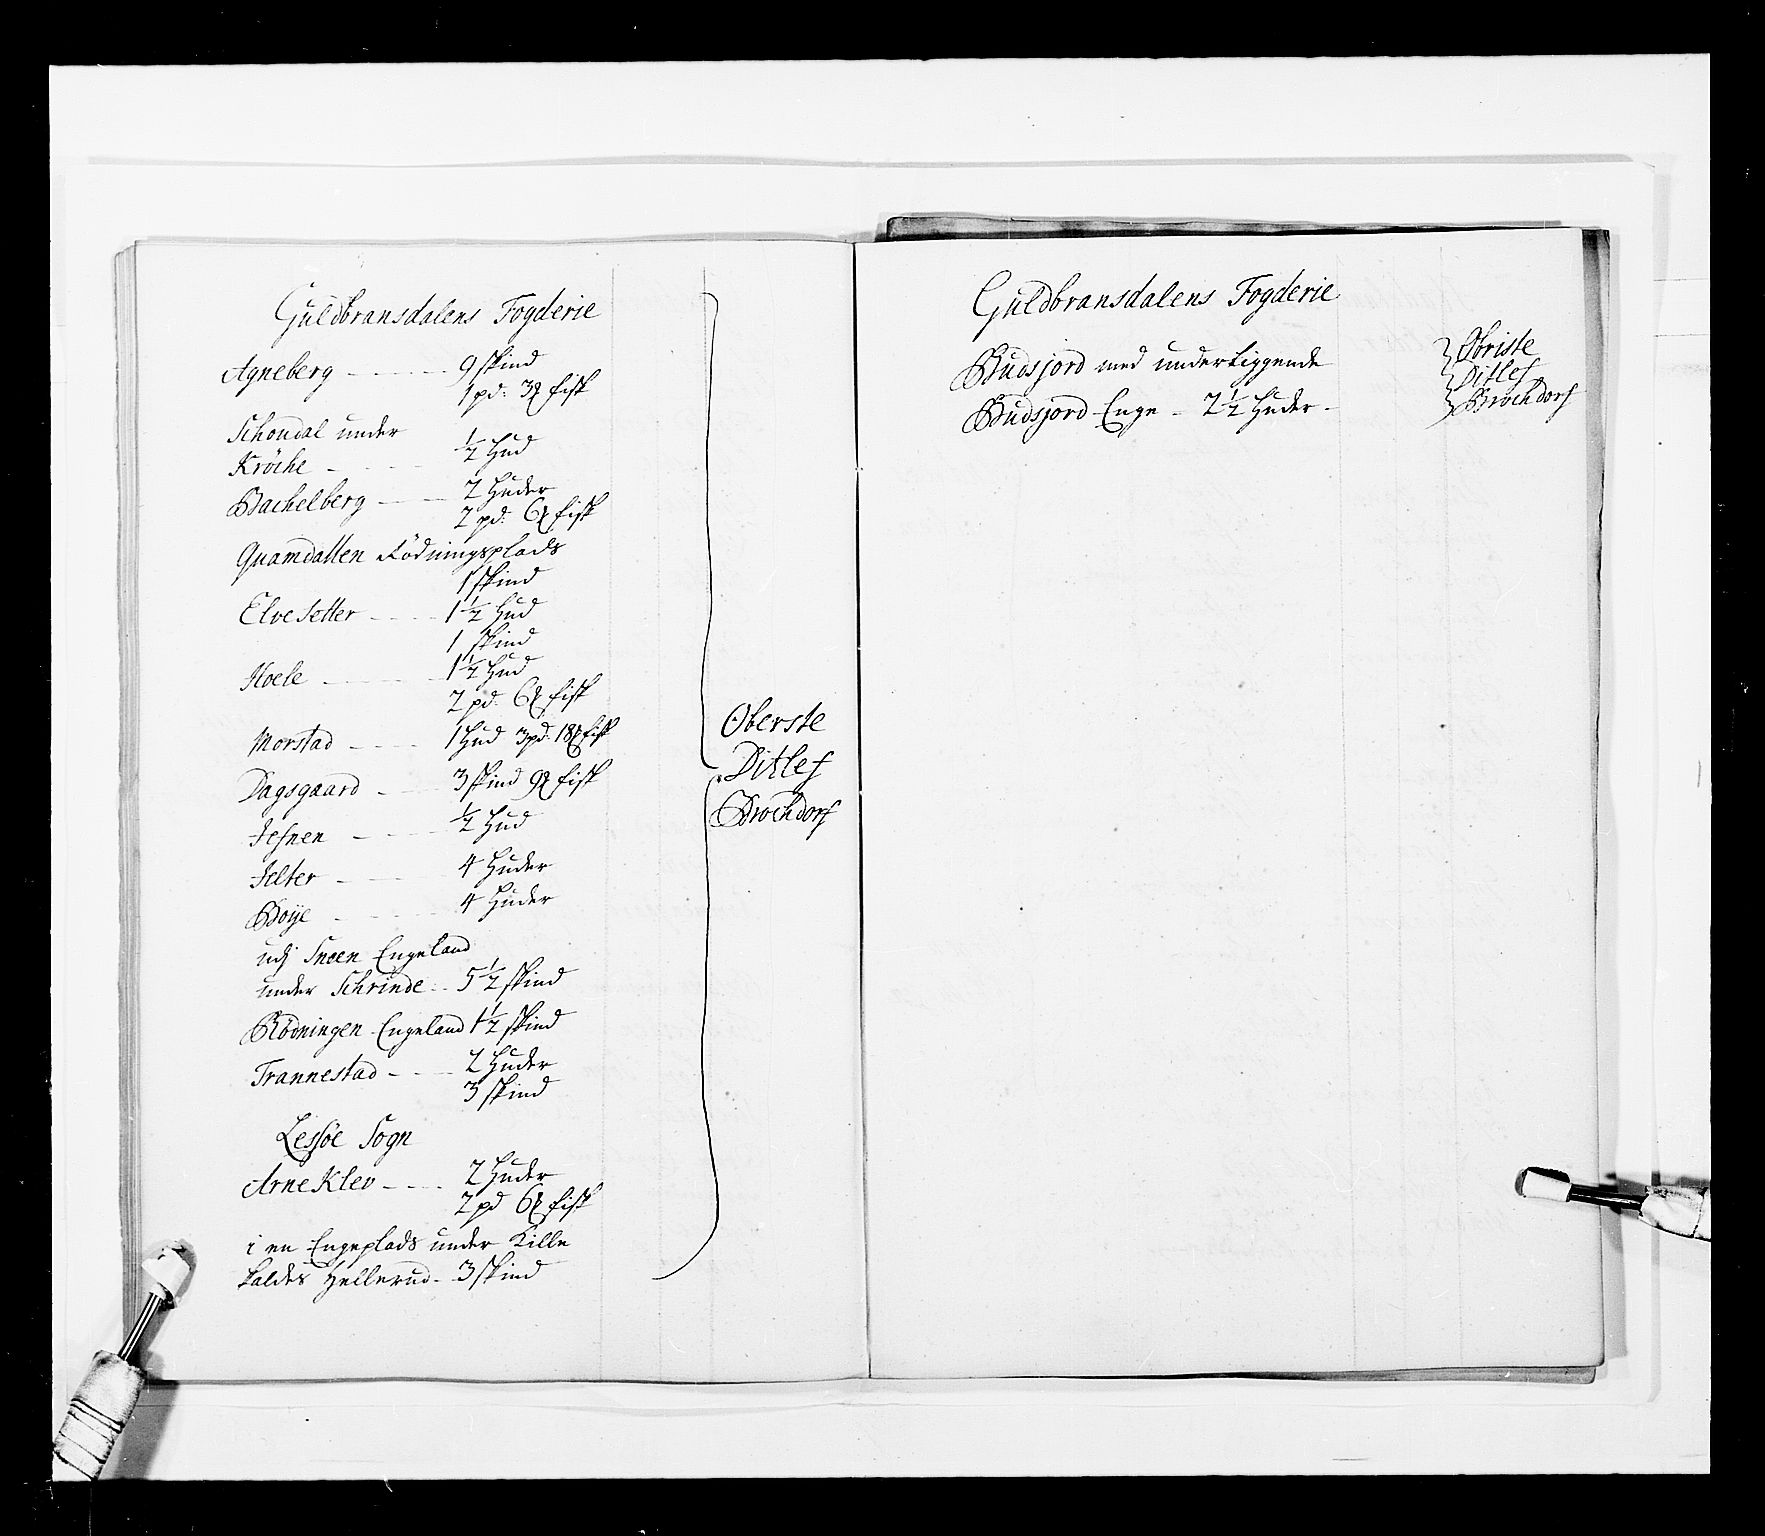 Guldbransdalens Fogderie
Agneberg - - - - - 9 skind
1 pd: 3 ℔ fisk
Schoudal under
Kröche - - - - ½ Hud
Bachelberg - - - 2 Huder
2 pd: 6 ℔ fisk
Quamdatten Rödningsplads
1 skind
Elvesetter - - - - 1½ Hud
1 skind
Hoele - - - - 1½ Hud
2 pd: 6 ℔ fisk
Morstad - - - - 1 Hud 3 pd: 18 ℔ fisk
Dagsgaard - - - 3 skind 9 ℔ fisk
Jesnen - - - ½ Hud
Jelter - - - 4 Huder
Boÿe - - - - 4 Huder
udj Snoen Engeland
under Schrinde - - 5½ skind
Rödningen Engeland 1½ skind
Trannestad - - - 2 Huder
3 skind
Lessöe Sogn
Arneklev - - - - 2 Huder
2 pd 6 ℔ fisk
i en Engeplads under Kille
kaldes Hellerud - 3 skind
Oberste
Ditlef
Brochdorf
Guldbransdalens Fogderie
Budsjord med underliggende
Budsjord Enge - 2½ Huder -
Obriste
Ditlef
Brochdorf